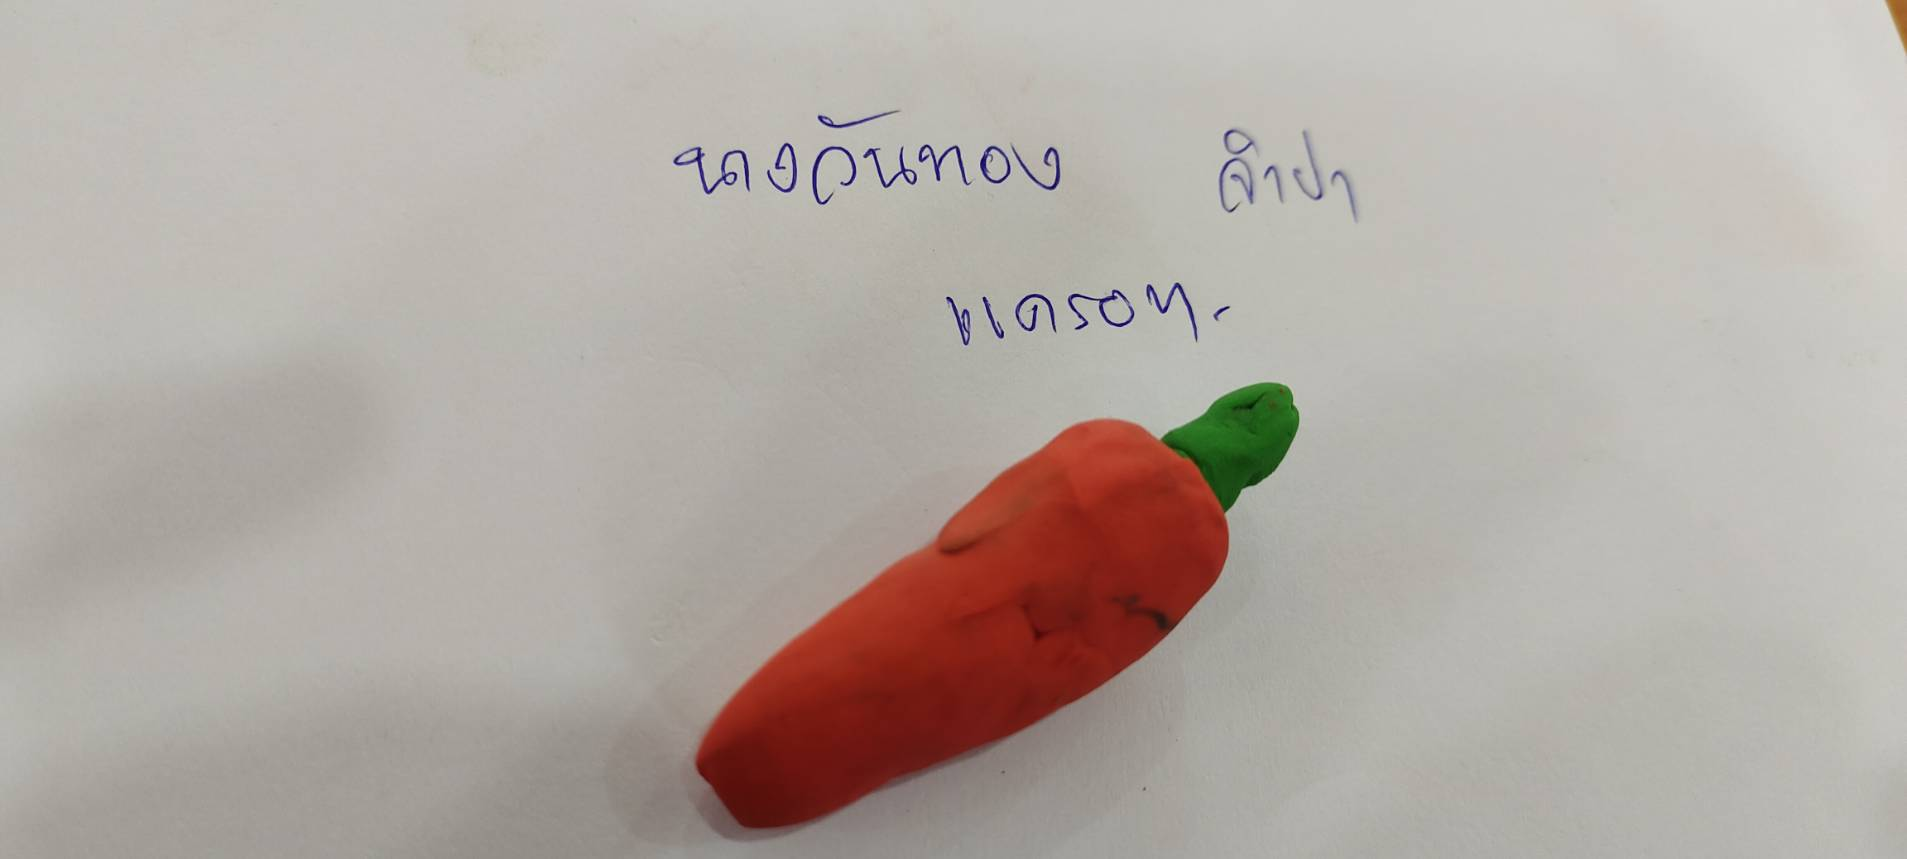 นางวันทอง จำปา
แครอท